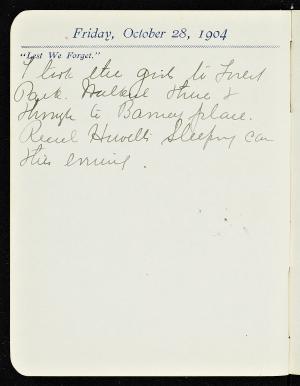 Friday, October 28, 1904
"Lest We Forget."
I took the girls to Forest
Park. Walked there &
through to Barney place.
Sleeping car
this evening.